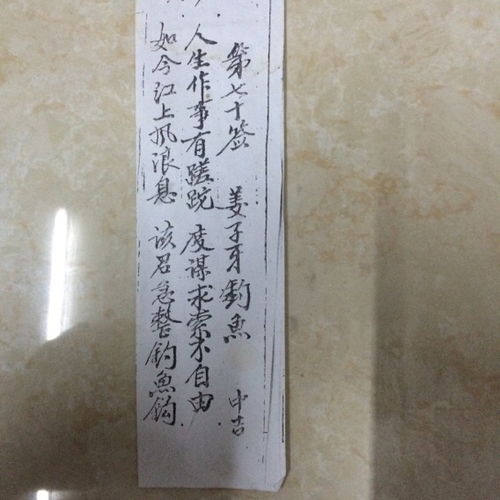 第七十签 姜子牙钓鱼 中吉
人生作事有蹉跎 度谋求索不自由
如今江上风浪息 该君急整钓鱼钩